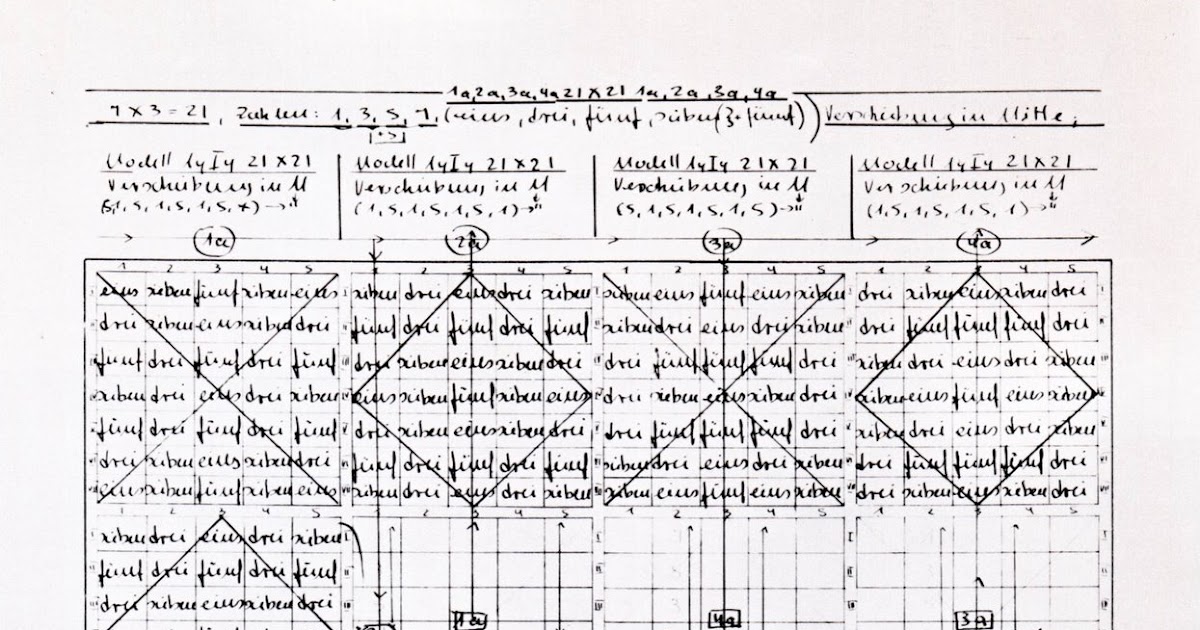 1a, 2a, 3a, 4a 21 x 21 1a, 2a, 3a, 4a
7 x 3 = 21, Zahlen: 1, 3, 5, 7, (eins, drei, fünf, sieben Verschiebung in Mitte;
Modell 1yIy 21 x 21 Modell 1yIy 21 x 21 Modell 1yIy 21 x 21 Modell 1yIy 21 x 21
Verschiebung in M Verschiebung in M Verschiebung in M Verschiebung in M
(1, 5, 1, 5, 1, 5, 1) (5, 1, 5, 1, 5, 1, 5) (1, 5, 1, 5, 1, 5, 1)
1a 2a 3a 4a
1 2 3 4 5 1 2 3 4 5 1 2 3 4 5 1 2 3 4 5
eins sieben fünf sieben eins sieben drei eins drei sieben sieben eins fünf eins sieben drei sieben eins sieben drei
drei sieben eins sieben drei fünf drei fünf drei fünf sieben drei eins drei sieben drei fünf fünf fünf drei
fünf drei fünf drei fünf drei sieben eins sieben drei drei fünf fünf fünf drei sieben drei eins drei sieben
sieben drei eins drei sieben eins sieben fünf sieben eins drei sieben eins sieben drei sieben eins fünf eins sieben
fünf drei fünf drei fünf drei sieben eins sieben drei drei fünf fünf fünf drei sieben drei eins drei sieben
drei sieben eins sieben drei fünf drei fünf drei fünf sieben drei eins drei sieben drei fünf fünf fünf drei
eins sieben fünf sieben eins sieben drei eins drei sieben sieben eins fünf eins sieben drei sieben eins sieben drei
1 2 3 4 5 1 2 3 4 5 1 2 3 4 5 1 2 3 4 5
sieben drei eins drei sieben
fünf drei fünf drei fünf
drei sieben eins sieben drei
1a 4a 3a